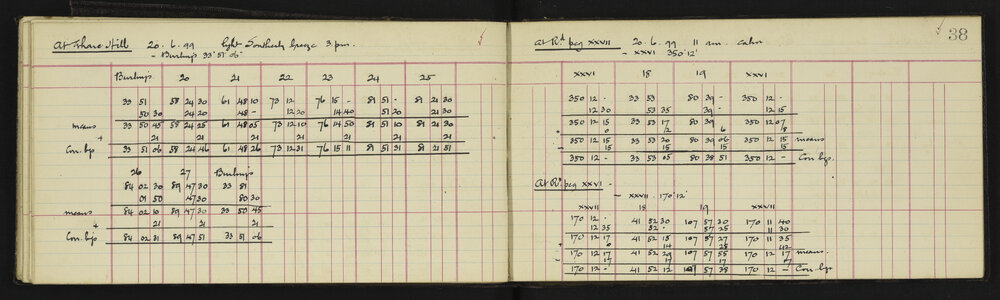 At Share Hill 20.6.99 light Southerly breeze 3 pm.
- Burling's 33° 51' 06"
Burling's 20 21 22 23 24 25
33 51 58 24 30 61 48 10 73 12 76 15 - 81 51 - 81 21 30
50 30 24 20 48 - 12 20 14 40 51 20 21 30
means 33 50 45 58 24 25 61 48 05 73 12 10 76 14 50 81 51 10 81 21 30
+ 21 21 21 21 21 21 21
Corr. bgs 33 51 06 58 24 46 61 48 26 73 12 31 76 15 11 81 51 31 81 21 51
26 27 Burling's
84 02 30 89 47 30 33 51
01 50 47 30 50 30
means 84 02 10 89 47 30 33 50 45
+ 21 21 21
Corr. bgs 84 02 31 89 47 51 33 51 06
38
At Rd peg XXVII 20.6.99 11 am. calm
- XXVI 350° 12'
XXVI 18 19 XXVI
350 12 - 33 53 80 39 - 350 12 -
12 30 53 35 39 - 12 15
350 12 15 33 53 17 80 39 350 12 07
+ 0 2 6 8
350 12 15 33 53 20 80 39 06 350 12 15 means
- 15 15 15 15
350 12 - 33 53 05 80 38 51 350 12 - Corr. bgs.
At Rd peg XXVI -
- XXVII 170° 12'
XXVII 18 19 XXVII
170 12 - 41 52 30 107 57 30 170 11 40
12 35 52 - 57 25 11 30
170 12 17 41 52 15 107 57 27 170 11 35
+ 0 14 28 42
170 12 17 41 52 29 107 57 55 170 12 17 means.
- 17 17 17 17
170 12 - 41 52 12 107 57 38 170 12 - Corr. bgs